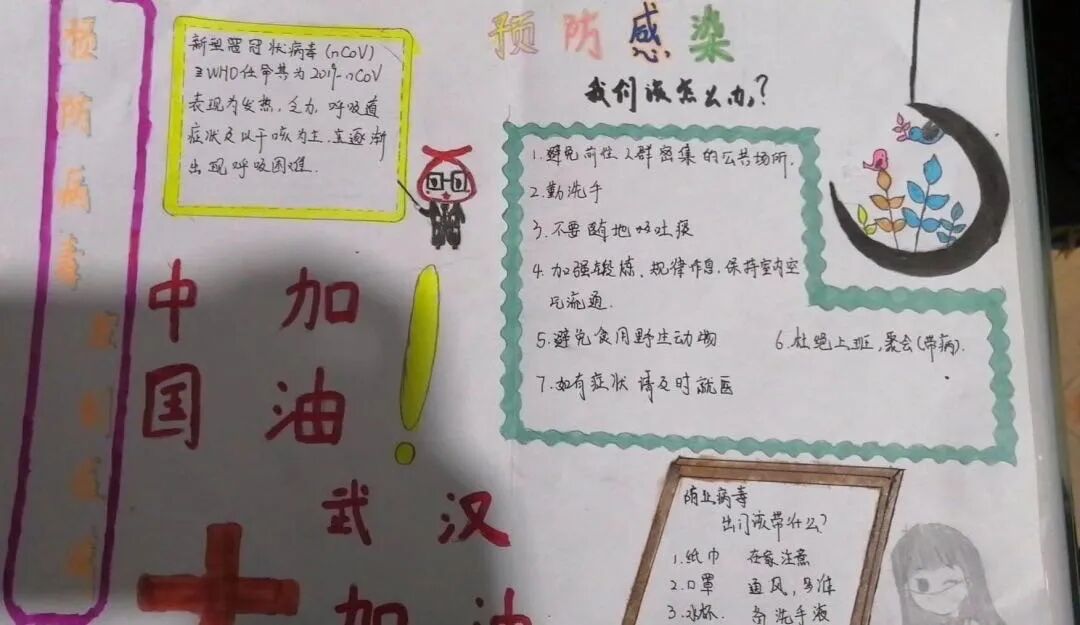 预防病毒
新型冠状病毒(nCoV)
WHO命其为2019-nCoV
表现为发热,乏力,呼吸道
症状以干咳为主,并逐渐
出现呼吸困难.
预防感染
我们该怎么办?
1.避免前往人群密集的公共场所.
2.勤洗手
3.不要随地吐痰
4.加强锻炼、规律作息,保持室内空
气流通.
5.避免食用野生动物
6.杜绝上班,聚会(带病).
7.如有症状 请及时就医
中国
加油!
武汉
加油
防止病毒
出门该带什么?
1.纸巾 在家注意
2.口罩 通风,
3.水杯. 备洗手液